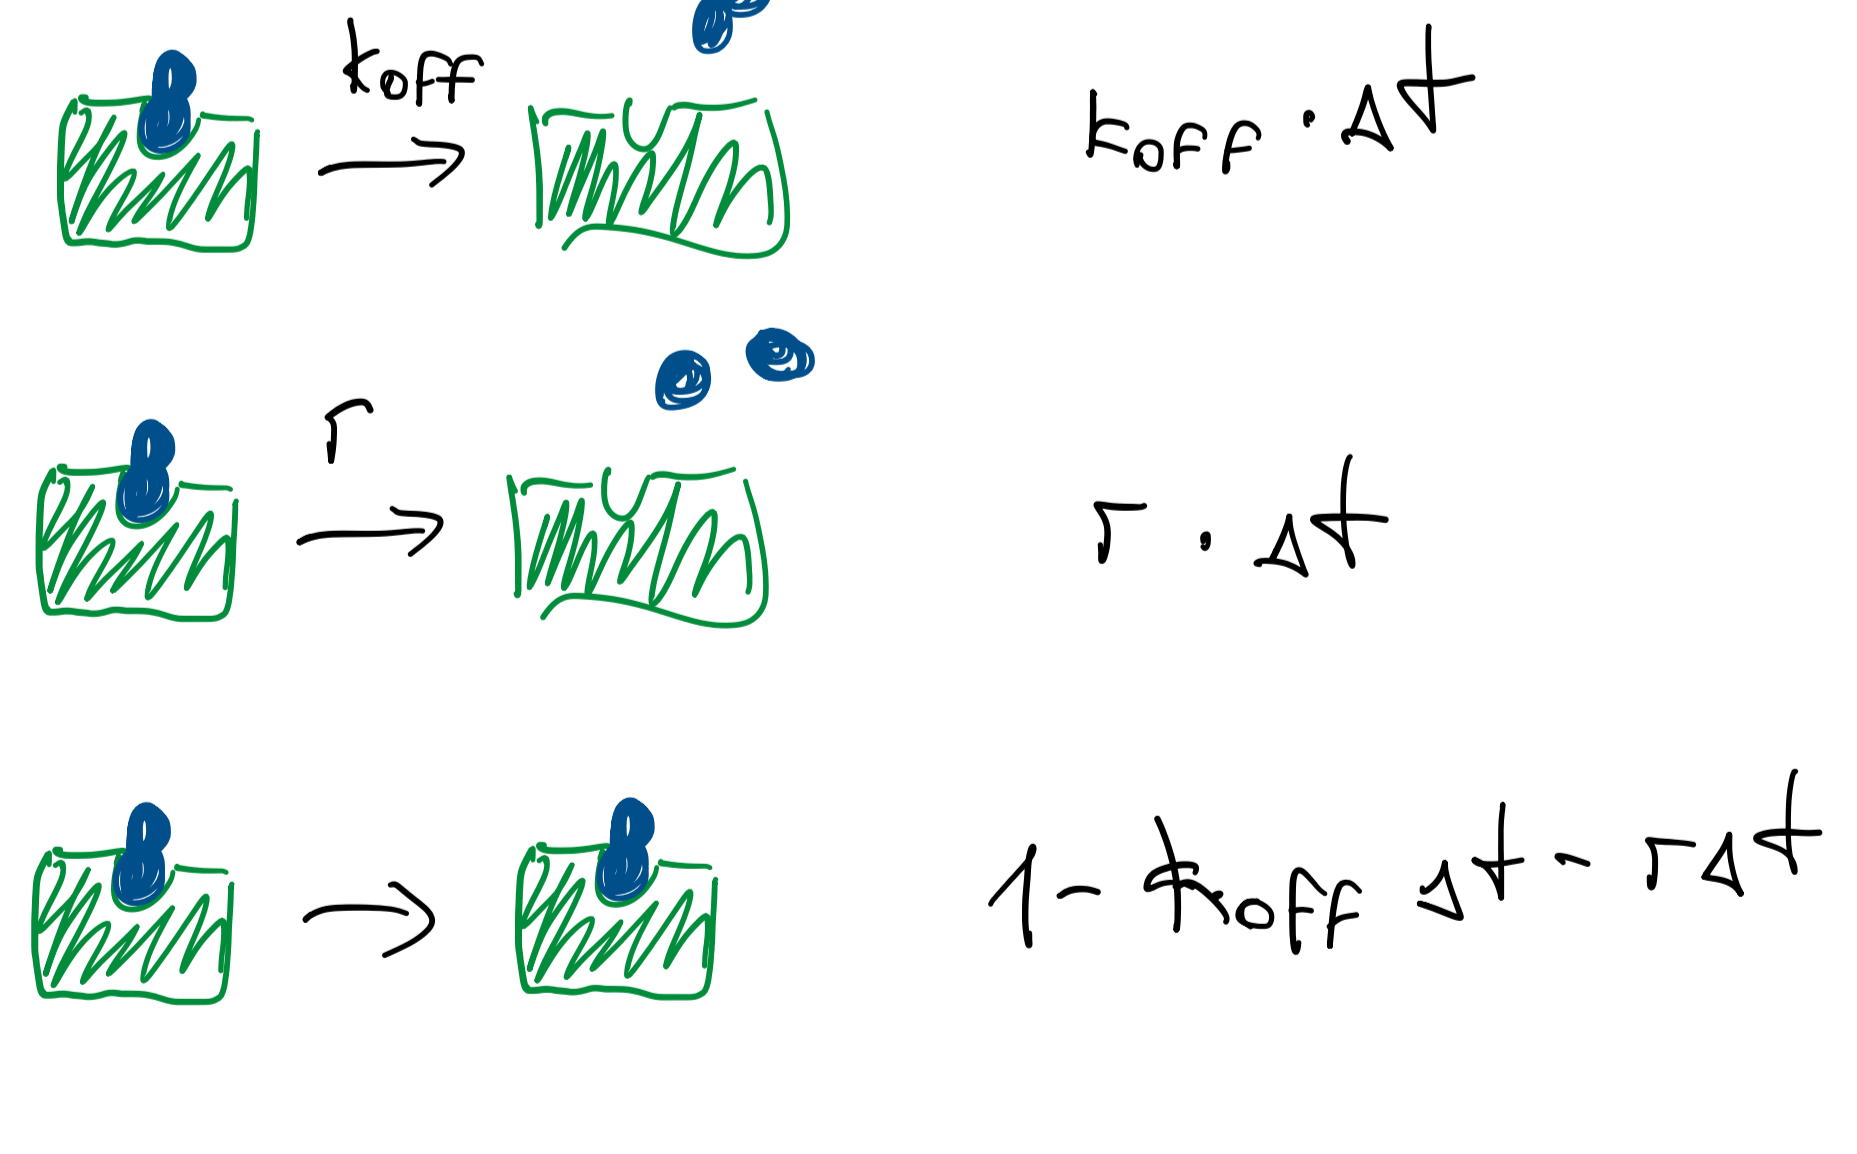 koff
koff · Δt
r
r · Δt
1 - koff Δt - rΔt